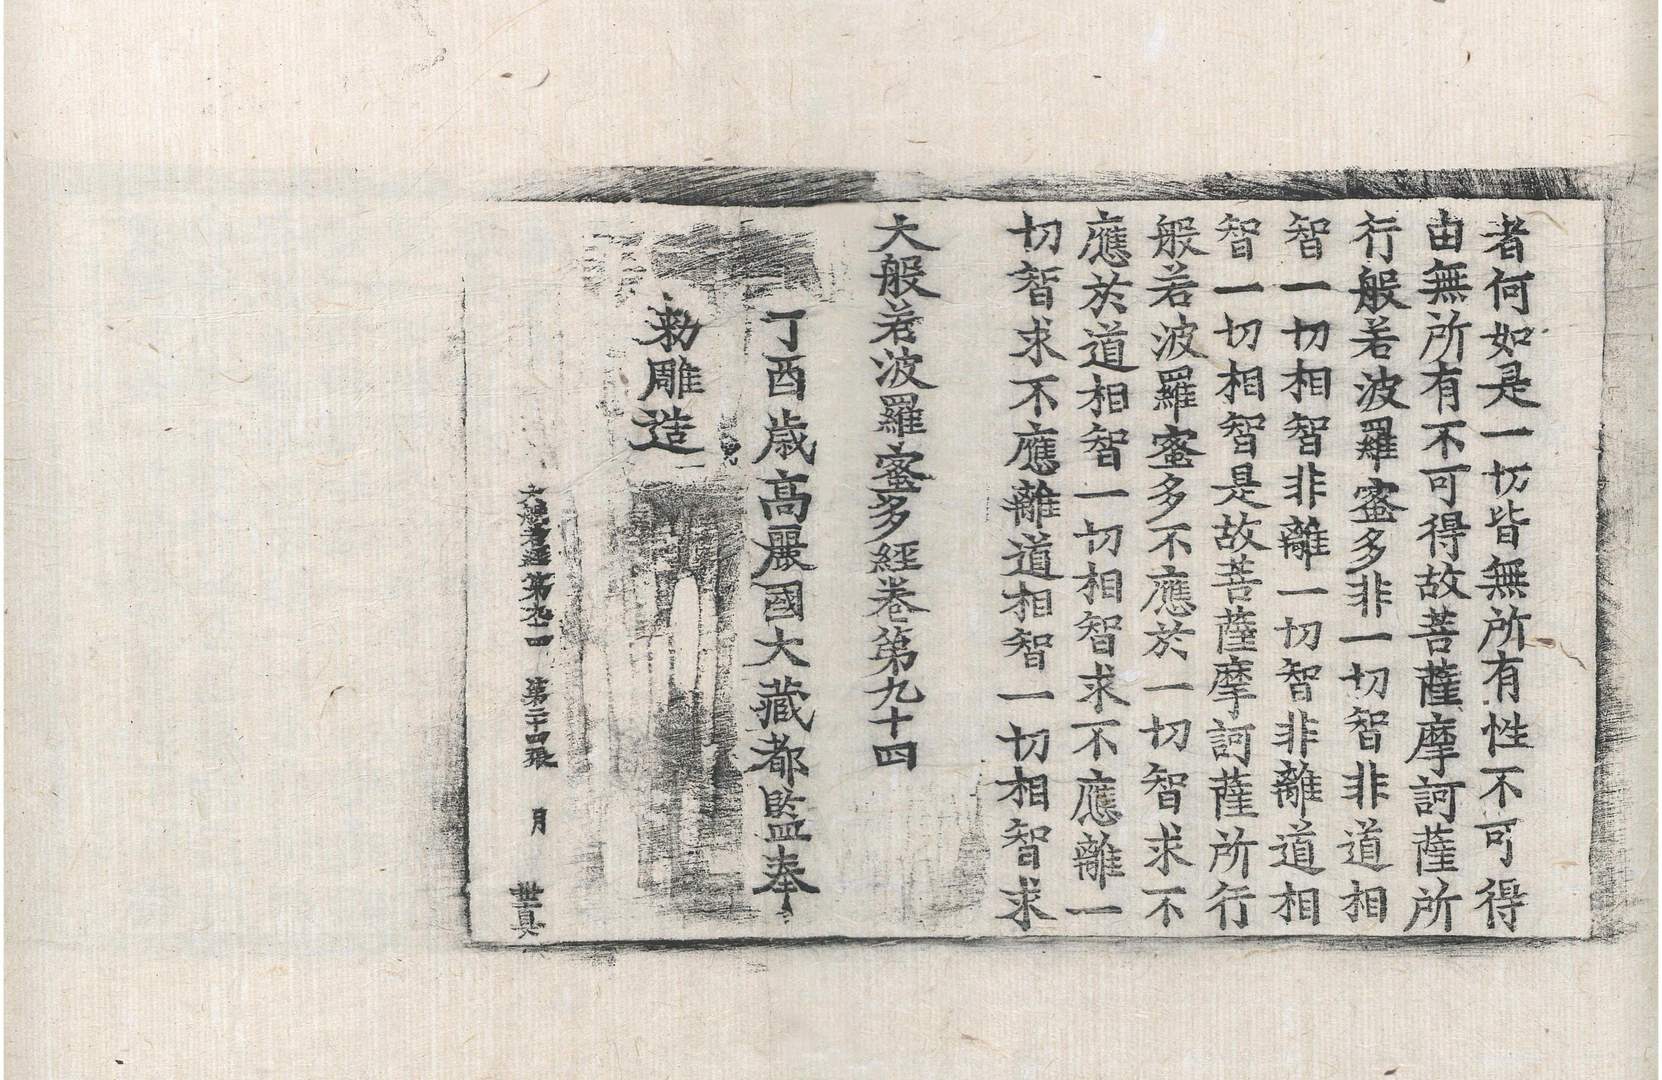 者何如是一切皆無所有性不可得
由無所有不可得故菩薩摩訶薩所
行般若波羅蜜多非一切智非道相
智一切相智非離一切智非離道相
智一切相智是故菩薩摩訶薩所行
般若波羅蜜多不應於一切智求不
應於道相智一切相智求不應離一
切智求不應離道相智一切相智求
大般若波羅蜜多經卷第九十四
丁酉歲高麗國大藏都監奉
勅雕造
大般若經第九十四 第二十四張 月 世真